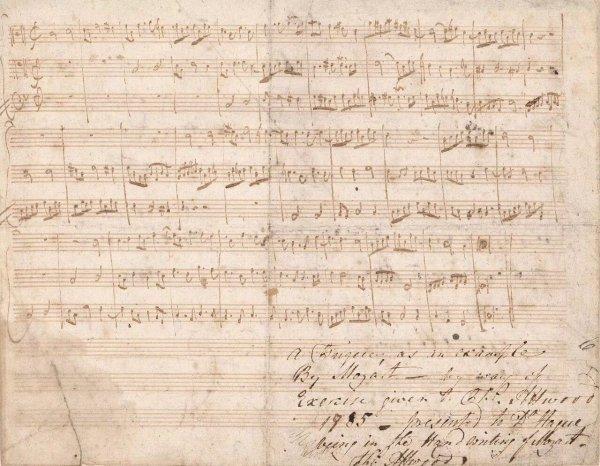 a Fugue, as an example
By Mozart — by way of
Exercise given to Thos. Attwood
1785 — presented to Dr Hague
being in the Handwriting of Mozart.
Thos. Attwood